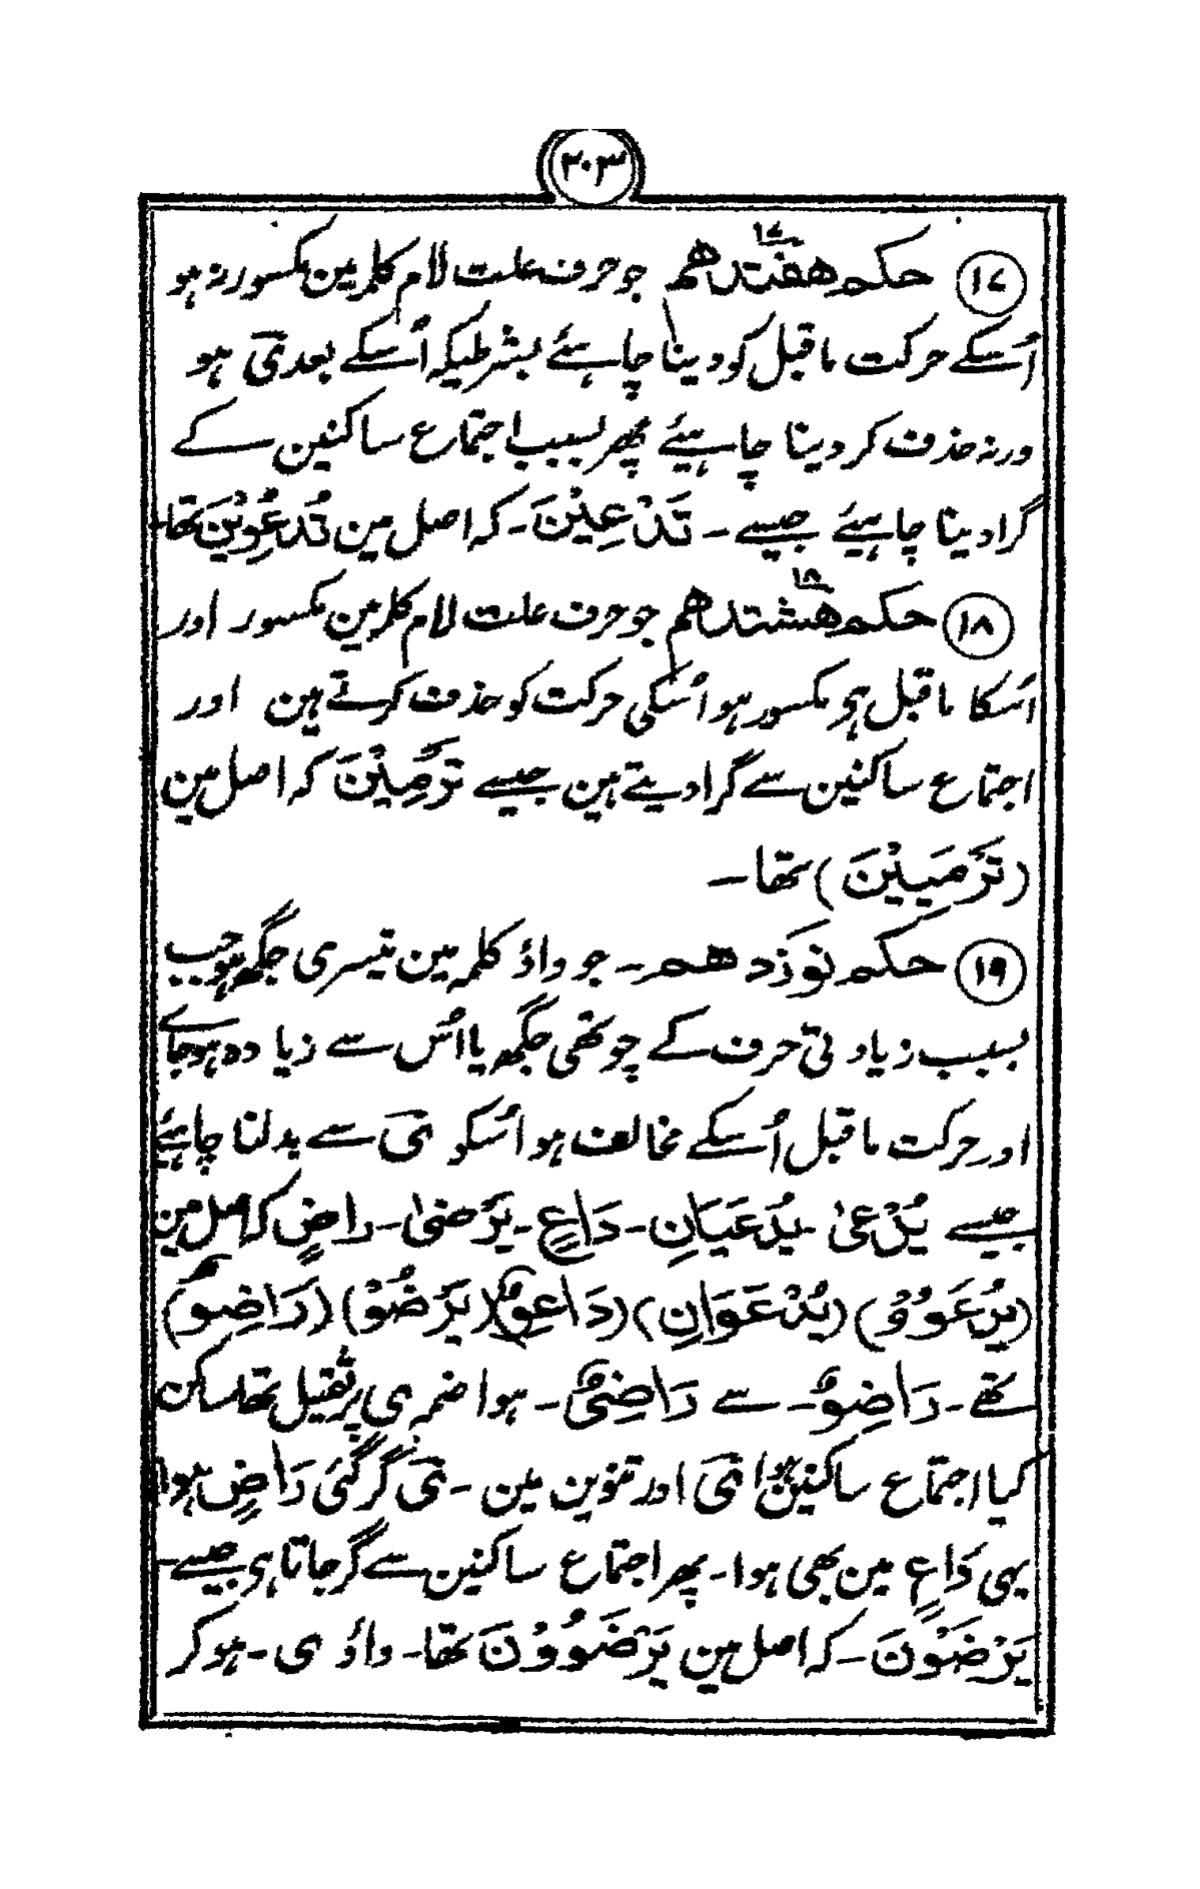 ۳۰۳
۱۷ حکم هفتدهم ۱۷ جو حرف علت لام کلمہ مین مکسور نہ ہو
اُسکے حرکت ماقبل کو دینا چاہئے بشرطیکہ اُسکے بعد یٓ ہو
ورنہ حذف کر دینا چاہیئے پھر بسبب اجتماع ساکنین کے
گرا دینا چاہیئے جیسے ۔ تَدْعِیْنَ ۔ کہ اصل مین تُدْعُوِیْنَ تھا ۔
۱۸ حکم هشتدهم ۱۸ جو حرف علت لام کلمہ مین مکسور اور
اُسکا ماقبل ہی مکسور ہو اُسکی حرکت کو حذف کرتے ہین اور
اجتماع ساکنین سے گرا دیتے ہین جیسے تَرْمِیْنَ کہ اصل مین
(تَرْمِیِیْنَ) تھا ۔
۱۹ حکم نوزدهم ۔ جو واؤ کلمہ مین تیسری جگہ ہو جب
بسبب زیادتی حرف کے چوتھی جگہ یا اُس سے زیادہ ہو جائے
اور حرکت ماقبل اُسکے مخالف ہو اُسکو یٓ سے بدلنا چاہئے
جیسے یُدْعٰی ۔ یُدْعَیَانِ ۔ دَاعٍ ۔ یَرْضٰی ۔ رَاضٍ کہ اصل مین
(یُدْعَوُ) (یُدْعَوَانِ) (دَاعِوٌ) (یَرْضَوُ) (رَاضِوٌ)
تھے ۔ رَاضِوٌ ۔ سے رَاضِیٌ ۔ ہوا ضمہ ی پر ثقیل تھا ساکن
کیا اجتماع ساکنین ہوا یٓ اور تنوین مین ۔ یٓ گر گئی رَاضٍ ہوا
یہی دَاعٍ مین بھی ہوا ۔ پھر اجتماع ساکنین سے گر جاتا ہی جیسے ۔
یَرْضَوْنَ ۔ کہ اصل مین یَرْضَوُوْنَ تھا ۔ واؤ ی ۔ ہو کر